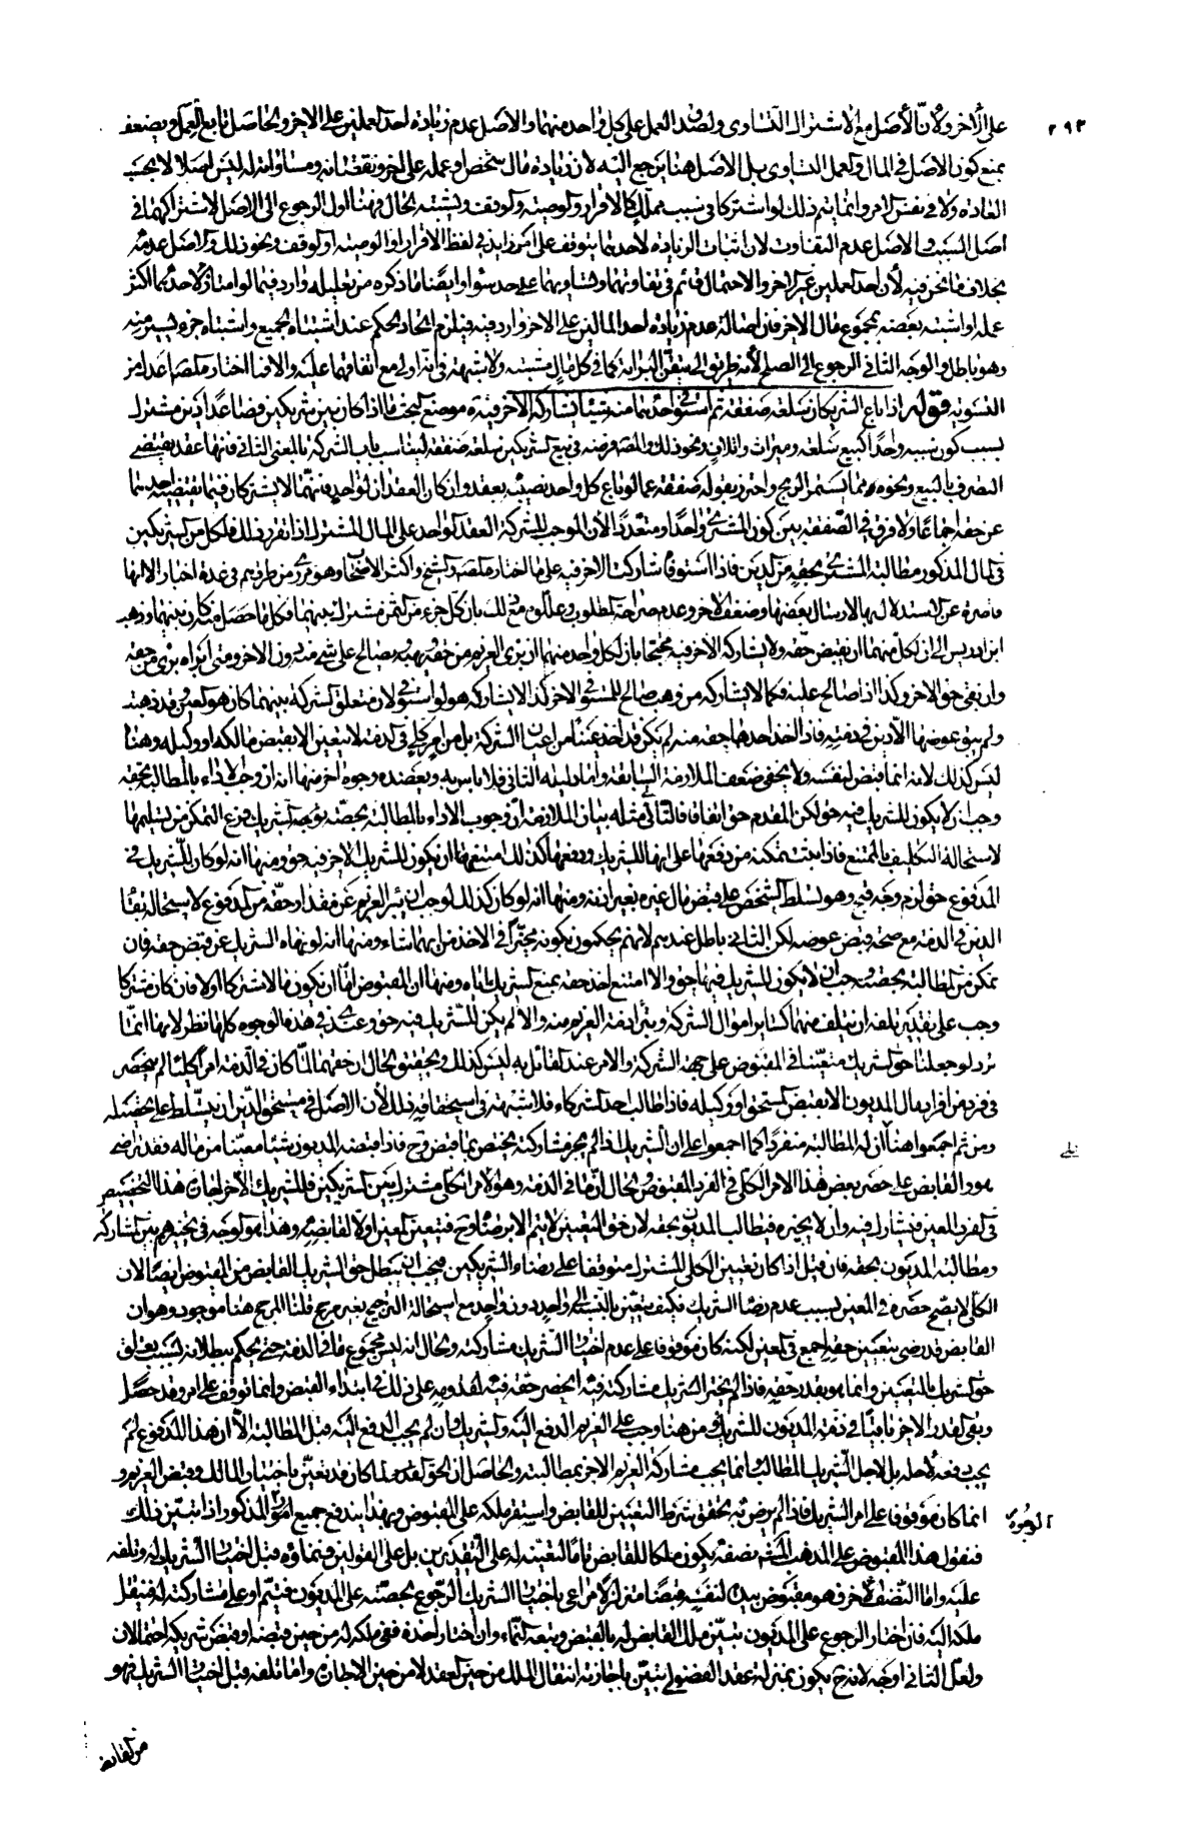 ٢٩٣
على الآخر ولأن الأصل مع الاشتراك التساوى ولصدق العمل على كل واحد منهما والاصل عدم زيادة احد العملين على الاخر والحاصل تابع للعمل ويضعف
بمنع كون الاصل فى المال والعمل التساوى بل الاصل هنا يرجع اليه لان زيادة مال شخص او عمله على اخر ونقصانه ومساواته له ليس اصلا لا بحسب
العادة ولا فى نفس الامر وانما يتم ذلك لو اشتركا فى سبب مملك كالاقرار والوصية والوقف ويشتبه الحال فهنا الرجوع الى الاصل لاشتراكهما فى
اصل السبب والاصل عدم التفاوت لان اثبات الزيادة لاحدهما يتوقف على امر زايد فى لفظ الاقرار او الوصية او الوقف ونحو ذلك والاصل عدمه
بخلاف ما نحن فيه لأن احد العملين غير الاخر والاحتمال قائم فى تفاوتهما وتساويهما على حد سواء وايضا ما ذكره من تعليله وارد فيما لو امتاز لاحدهما اكثر
عمله واشتبه بعضه بمجموع مال الاخر فان اصالة عدم زيادة احد المالين على الاخر وارد فيه فيلزم اتحاد الحكم عند اشتباه الجميع واشتباه جزء يسير منه
وهو باطل والوجه الثانى الرجوع الى الصلح لأنه طريق الى تيقن البراءة كما فى كل مال مشتبه ولا شبهة فى انه اولى مع اتفاقهما عليه والا فما اختاره المصنف اعدل من
التسوية قوله اذا باع الشريكان سلعة صفقة ثم استوفى احدهما منه شيئا شاركه الاخر فيه موضع البحث ما اذا كان بين شريكين فصاعدا دين مشترك
بسبب كون سببه واحدا كبيع سلعة وميراث واتلاف ونحو ذلك والمصنف فرضه فى بيع الشريكين سلعة صفقة ليناسب باب الشركة بالمعنى الثانى فانها عقد يقتضى
التصرف بالبيع ونحوه مما يستمر الربح واحترز بقوله صفقة عما لو باع كل واحد نصيبه بعقد وان كان العقدان لواحد فانهما لا يشتركان فيما يقبضه احدهما
عن حقه اجماعا ولا فرق فى الصفقة بين كون المشترى واحدا ومتعددا لأن الموجب للشركة العقد الواحد على المال المشترك اذا تقرر ذلك فلكل من الشريكين
فى المال المذكور مطالبة المشترى بحقه من الدين فاذا استوفاه شاركه الاخر فيه على ما اختاره المصنف والشيخ واكثر الاصحاب وهو مروى من طرقهم فى عدة اخبار الا انها
قاصرة عن الاستدلال بها لارسال بعضها وضعف الاخر وعدم صراحة المطلوب وعللوه مع ذلك بان كل جزء من الثمن مشترك بينهما فكل ما حصل منه كان بينهما وذهب
ابن ادريس الى ان لكل منهما ان يقبض حقه ولا يشاركه الاخر فيه محتجا بان لكل واحد منهما ان يبرئ الغريم من حقه ويهبه ويصالح على شىء منه دون الاخر ومتى ابراه برئ من حقه
وان بقى حق الاخر وكذا اذا صالح عليه فكما لا يشاركه من وهب او صالح للمستوفى الاخر كذا لا يشاركه هو لو استوفى ولان متعلق الشركة بينهما كان هو العين وقد ذهبت
ولم يبق عوضها الا دين فى ذمته فاذا اخذ احدهما حقه منه لم يكن قد اخذ عينا من اعيان الشركة بل من امر كلى فى الذمة لا يتعين الا بقبض مالكه او وكيله وهنا
ليس كذلك لانه انما قبض لنفسه ولا يخفى ضعف الملازمة السابقة واما دليله الثانى فلا باس به ويعضده وجوه اخر منها انه ان وجب الاداء بالمطالبة بحقه
وجب ان لا يكون للشريك فيه حق لكن المقدم حق اتفاقا فالتالى مثله بيان الملازمة ان وجوب الاداء بالمطالبة بحصته يوجب الشريك فرع التمكن من تسليمها
لاستحالة التكليف بالممتنع فاذا ثبت تمكنه من دفعها على انها للشريك ودفعها كذلك امتنع ان يكون للشريك الاخر فيه حق ومنها انه لو كان للشريك فى
المدفوع حق لزم وجه قبح وهو تسلط الشخص على قبض مال غيره بغير اذنه ومنها انه لو كان كذلك لوجب ان يبرأ الغريم عن مقدار حقه من المدفوع لاستحالة بقاء
الدين فى الذمة مع صحة قبض عوضه لكن التالى باطل عندهم لانهم يحكمون بكونه مخيرا فى الاخذ من ايهما شاء ومنها انه لو نهاه الشريك عن قبض حقه فان
تمكن من المطالبة بحقه وجب ان لا يكون للشريك فيها حق والا امتنع اخذ حقه بمنع الشريك اياه ومنها ان المقبوض اما ان يكون مالا مشتركا اولا فان كان مشتركا
وجب على تقدير تلفه ان يتلف منهما كسائر اموال الشركة وتبرأ ذمة الغريم منه والا لم يكن للشريك فيه حق وعندى فى هذه الوجوه كلها نظر لانها انما
ترد لو جعلنا حق الشريك متعينا فى المقبوض على جهة الشركة والامر عند القائل به ليس كذلك وتحقيق الحال ان حقهما لما كان فى الذمة امرا كليا لم ينحصر
فى فرد من افراد مال المديون الا بقبض المستحق او وكيله فاذا طالب احد الشركاء فلا شبهة فى استحقاقه ذلك لأن الاصل فى مستحق الدين ان يتسلط على تحصيله
ومن ثم اجمعوا هنا على ان له المطالبة منفردا كما اجمعوا على ان الشريك اذا لم يجز مشاركته يختص بما قبض وح فاذا اقبضه المديون شيئا معينا من ماله فقد تراضى
هو والقابض على حصر بعض هذا الامر الكلى فى الفرد المقبوض والحال ان ما فى الذمة وهو الامر الكلى مشترك بين الشريكين فللشريك الاخر اجازة هذا التخصيص
فى الفرد المعين فيشارك فيه وان لا يجيزه فيطالب المديون بحقه لان حق التعيين لا يتم الا برضاه وح فيتعين المعين اولا لقابضه وهذا هو الوجه فى تخييرهم بين مشاركته
ومطالبة المديون بحقه فان قيل اذا كان تعيين الكلى المشترك متوقفا على رضاء الشريكين فيجب ان يبطل حق الشريك القابض من المقبوض ايضا لان
الكلى لا يصح حصره فى المعين بسبب عدم رضا الشريك فكيف يتعين بالنسبة الى واحد دون واحد مع استحالة الترجيح بغير مرجح قلنا المرجح هنا موجود وهو ان
القابض قد رضى بتعيين حقه اجمع فى المعين لكنه كان موقوفا على عدم اختيار الشريك مشاركته والحال انه ليس مجموع ما فى الذمة حتى يحكم ببطلانه بسبب تعلق
حق الشريك بالتعيين وانما هو بقدر حقه فاذا لم يختر الشريك مشاركته فيه انحصر حقه فيه لقدومه على ذلك فى ابتداء القبض وانما توقف على امر وقد حصل
وبقى القدر الاخر باقيا فى ذمة المديون للشريك ومن هنا وجب على الغريم الدفع اليه والشريك وان لم يجب الدفع اليه قبل المطالبة الا ان هذا المدفوع لم
يجب دفعه لأجله بل لاجل الشريك المطالب وانما يجب مشاركة الغريم الاخر بمطالبته والحاصل ان الحق لهما كان قد تعين باختيار المالك وقبض الغريم و
انما كان موقوفا على امر الشريك فاذا لم يرض به تحقق شرط التعيين للقابض واستقر ملكه على المقبوض وبهذا يندفع جميع الوجوه المذكورة اذا تبين ذلك
فنقول هذا المقبوض على المذهب نصفه يكون ملكا للقابض تاما لتعينه له على التقديرين بل على القولين فنماؤه قبل اختيار الشريك له وتلفه
عليه واما النصف الاخر فهو مقبوض بيده لنفسه قبضا متزلزلا مراعى باختيار الشريك الرجوع بحصته على المديون فيتم او على مشاركته له فينتقل
ملكه اليه فان اختار الرجوع على المديون تبين ملك القابض له بالقبض وتبعه النماء وان اختار اخذه ففى ملكه له من حين قبضه او قبض شريكه احتمالان
ولعل الثانى اوجه لانه ح يكون بمنزلة عقد الفضولى يتبين باجازته انتقال الملك من حين العقد لا من حين الاجازة واما تلفه قبل اختيار الشريك فهو
من القابض